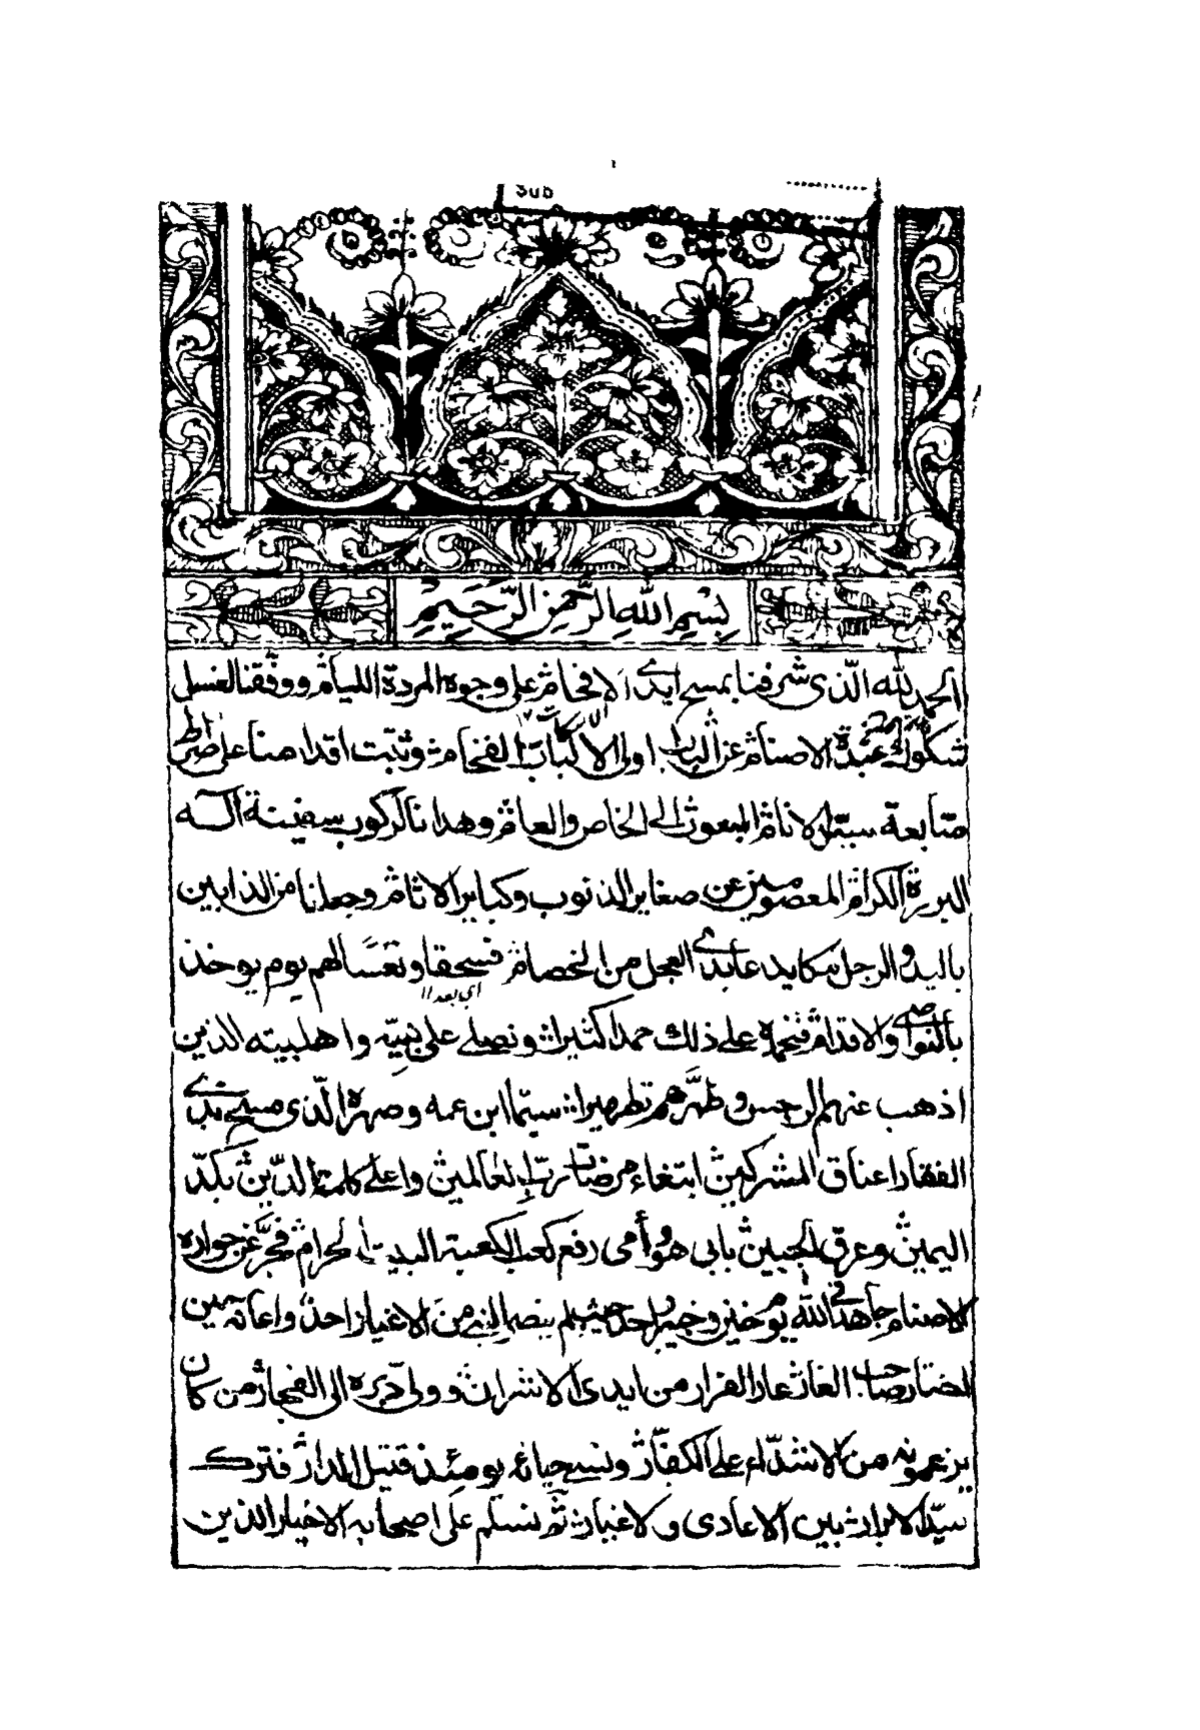 Sub
بِسْمِ اللهِ الرَّحْمٰنِ الرَّحِيْمِ
الحمد لله الّذى شرفنا بمسح ايدى الافخام على وجوه المردة الليام ووفّقنا لغسل
شكوك عبدة الاصنام عن اولى الالباب الفخام وثبّت اقدامنا على صراط
متابعة سيّد الانام المبعوث الى الخاص والعام وهدانا لركوب سفينة آله
البررة الكرام المعصومين عن صغاير الذنوب وكباير الاثام وجعلنا من الذابين
باليد والرجل مكايد عابدى العجل من الخصام فسحقا وتعسًا لهم يوم يوخذ
اى بعدا ١١
بالنواصى والاقدام فنحمده على ذلك حمدا كثيرا ونصلى على نبيّه واهلبيته الذين
اذهب عنهم الرجس وطهَّرهم تطهيرا سيّما ابن عمه وصهره الّذى مسح بذى
الفقار اعناق المشركين ابتغاء مرضات ربّ العالمين واعلى كلمة الدّين بكدّ
اليمين وعرق الجبين بابى هو وأمى رفع كعب الكعبة البيت الحرام فجرَّ عن جواره
الاصنام جاهد فى الله يوم حنين وخيبر واحد حيث لم ينصر النبى من الاغيار احد واعانه حين
اختار صاحب الغار عار الفرار من ايدى الاشرار وولى دبره الى الفجار من كان
يزعمونه من الاشدّاء على الكفّار ونسى حيائه يومئذ قتيل الدار فترك
سيّد الابرار بين الاعادى والاغيار ثم نسلّم على اصحابه الاخيار الذين